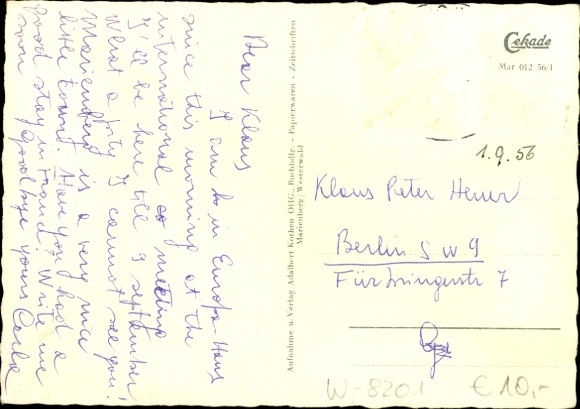 Dear Klaus
I am in Europa-Haus
since this morning at the
international meeting
I'll be here till 9 september
What a pity I cannot see you!
Marienberg is a very nice
little town. Have you had a
good stay in France? Write me
soon Goodbye yours Carla
Aufnahme u. Verlag Adalbert Kothen OHG., Buchhdlg. - Papierwaren - Zeitschriften
Marienberg/Westerwald
Cekade
Mar 012 56/1
1.9.56
Klaus Peter Heuer
Berlin SW 9
7
W-8201 €10,-